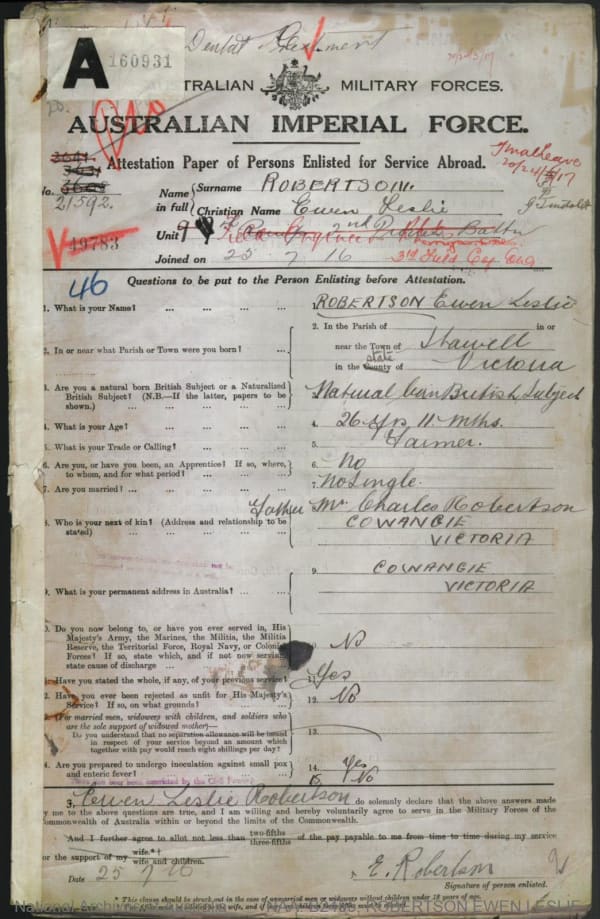 Dental Treatment
A 160931
20/24/5/17
TRALIAN MILITARY FORCES.
AUSTRALIAN IMPERIAL FORCE.
Attestation Paper of Persons Enlisted for Service Abroad.
Final Leave
20/24/5/17
No. 21592.
Name in full { Surname ROBERTSON.
Christian Name Ewen Leslie
Unit 2nd Battn
49783
3rd Field Coy Eng
Joined on 25 7 16
46
Questions to be put to the Person Enlisting before Attestation.
1. What is your Name? ... ... ... ROBERTSON Ewen Leslie
2. In or near what Parish or Town were you born? ... 2. In the Parish of in or
near the Town of Stawell
state
in the County of Victoria
3. Are you a natural born British Subject or a Naturalized
British Subject? (N.B.—If the latter, papers to be
shown.) ... ... ... ... Natural born British Subject
4. What is your Age? ... ... ... 4. 26 Yrs 11 Mths.
5. What is your Trade or Calling? ... ... 5. Farmer.
6. Are you, or have you been, an Apprentice? If so, where,
to whom, and for what period? ... ... 6. No
7. Are you married? ... ... ... No Single.
8. Who is your next of kin? (Address and relationship to be
stated) ... ... ... Father Mr Charles Robertson
COWANGIE
VICTORIA
9. What is your permanent address in Australia? ... ... 9. COWANGIE
VICTORIA
0. Do you now belong to, or have you ever served in, His
Majesty's Army, the Marines, the Militia, the Militia
Reserve, the Territorial Force, Royal Navy, or Colonial
Forces? If so, state which, and if not now serving,
state cause of discharge ... ... ... No
1. Have you stated the whole, if any, of your previous service? Yes
2. Have you ever been rejected as unfit for His Majesty's
Service? If so, on what grounds? ... ... 12. No
3. (For married men, widowers with children, and soldiers who
are the sole support of widowed mother)—
Do you understand that no separation allowance will be issued
in respect of your service beyond an amount which
together with pay would reach eight shillings per day? 13.
4. Are you prepared to undergo inoculation against small pox
and enteric fever? ... ... ... 14. Yes
Have you ever been convicted by the Civil Power? 15. No
I, Ewen Leslie Robertson do solemnly declare that the above answers made
by me to the above questions are true, and I am willing and hereby voluntarily agree to serve in the Military Forces of the
Commonwealth of Australia within or beyond the limits of the Commonwealth.
And I further agree to allot not less than two-fifths three-fifths of the pay payable to me from time to time during my service
for the support of my wife.*† wife and children.
Date 25 7 16
E. Robertson
Signature of person enlisted.
* This clause should be struck out in the case of unmarried men or widowers without children under 18 years of age.
ROBERTSON EWEN LESLIE